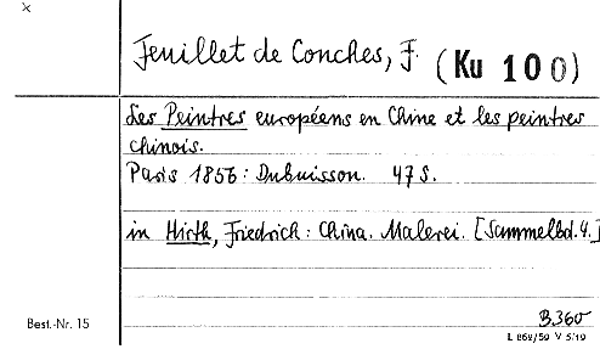 x
Feuillet de Conches, F. (Ku 100)
Les Peintres européens en Chine et les peintres
chinois.
Paris 1856: Dubuisson. 47 S.
in Hirth, Friedrich: China. Malerei. [Sammelbd. 4.]
B360
Best.-Nr. 15
L 868/59 V 5/19